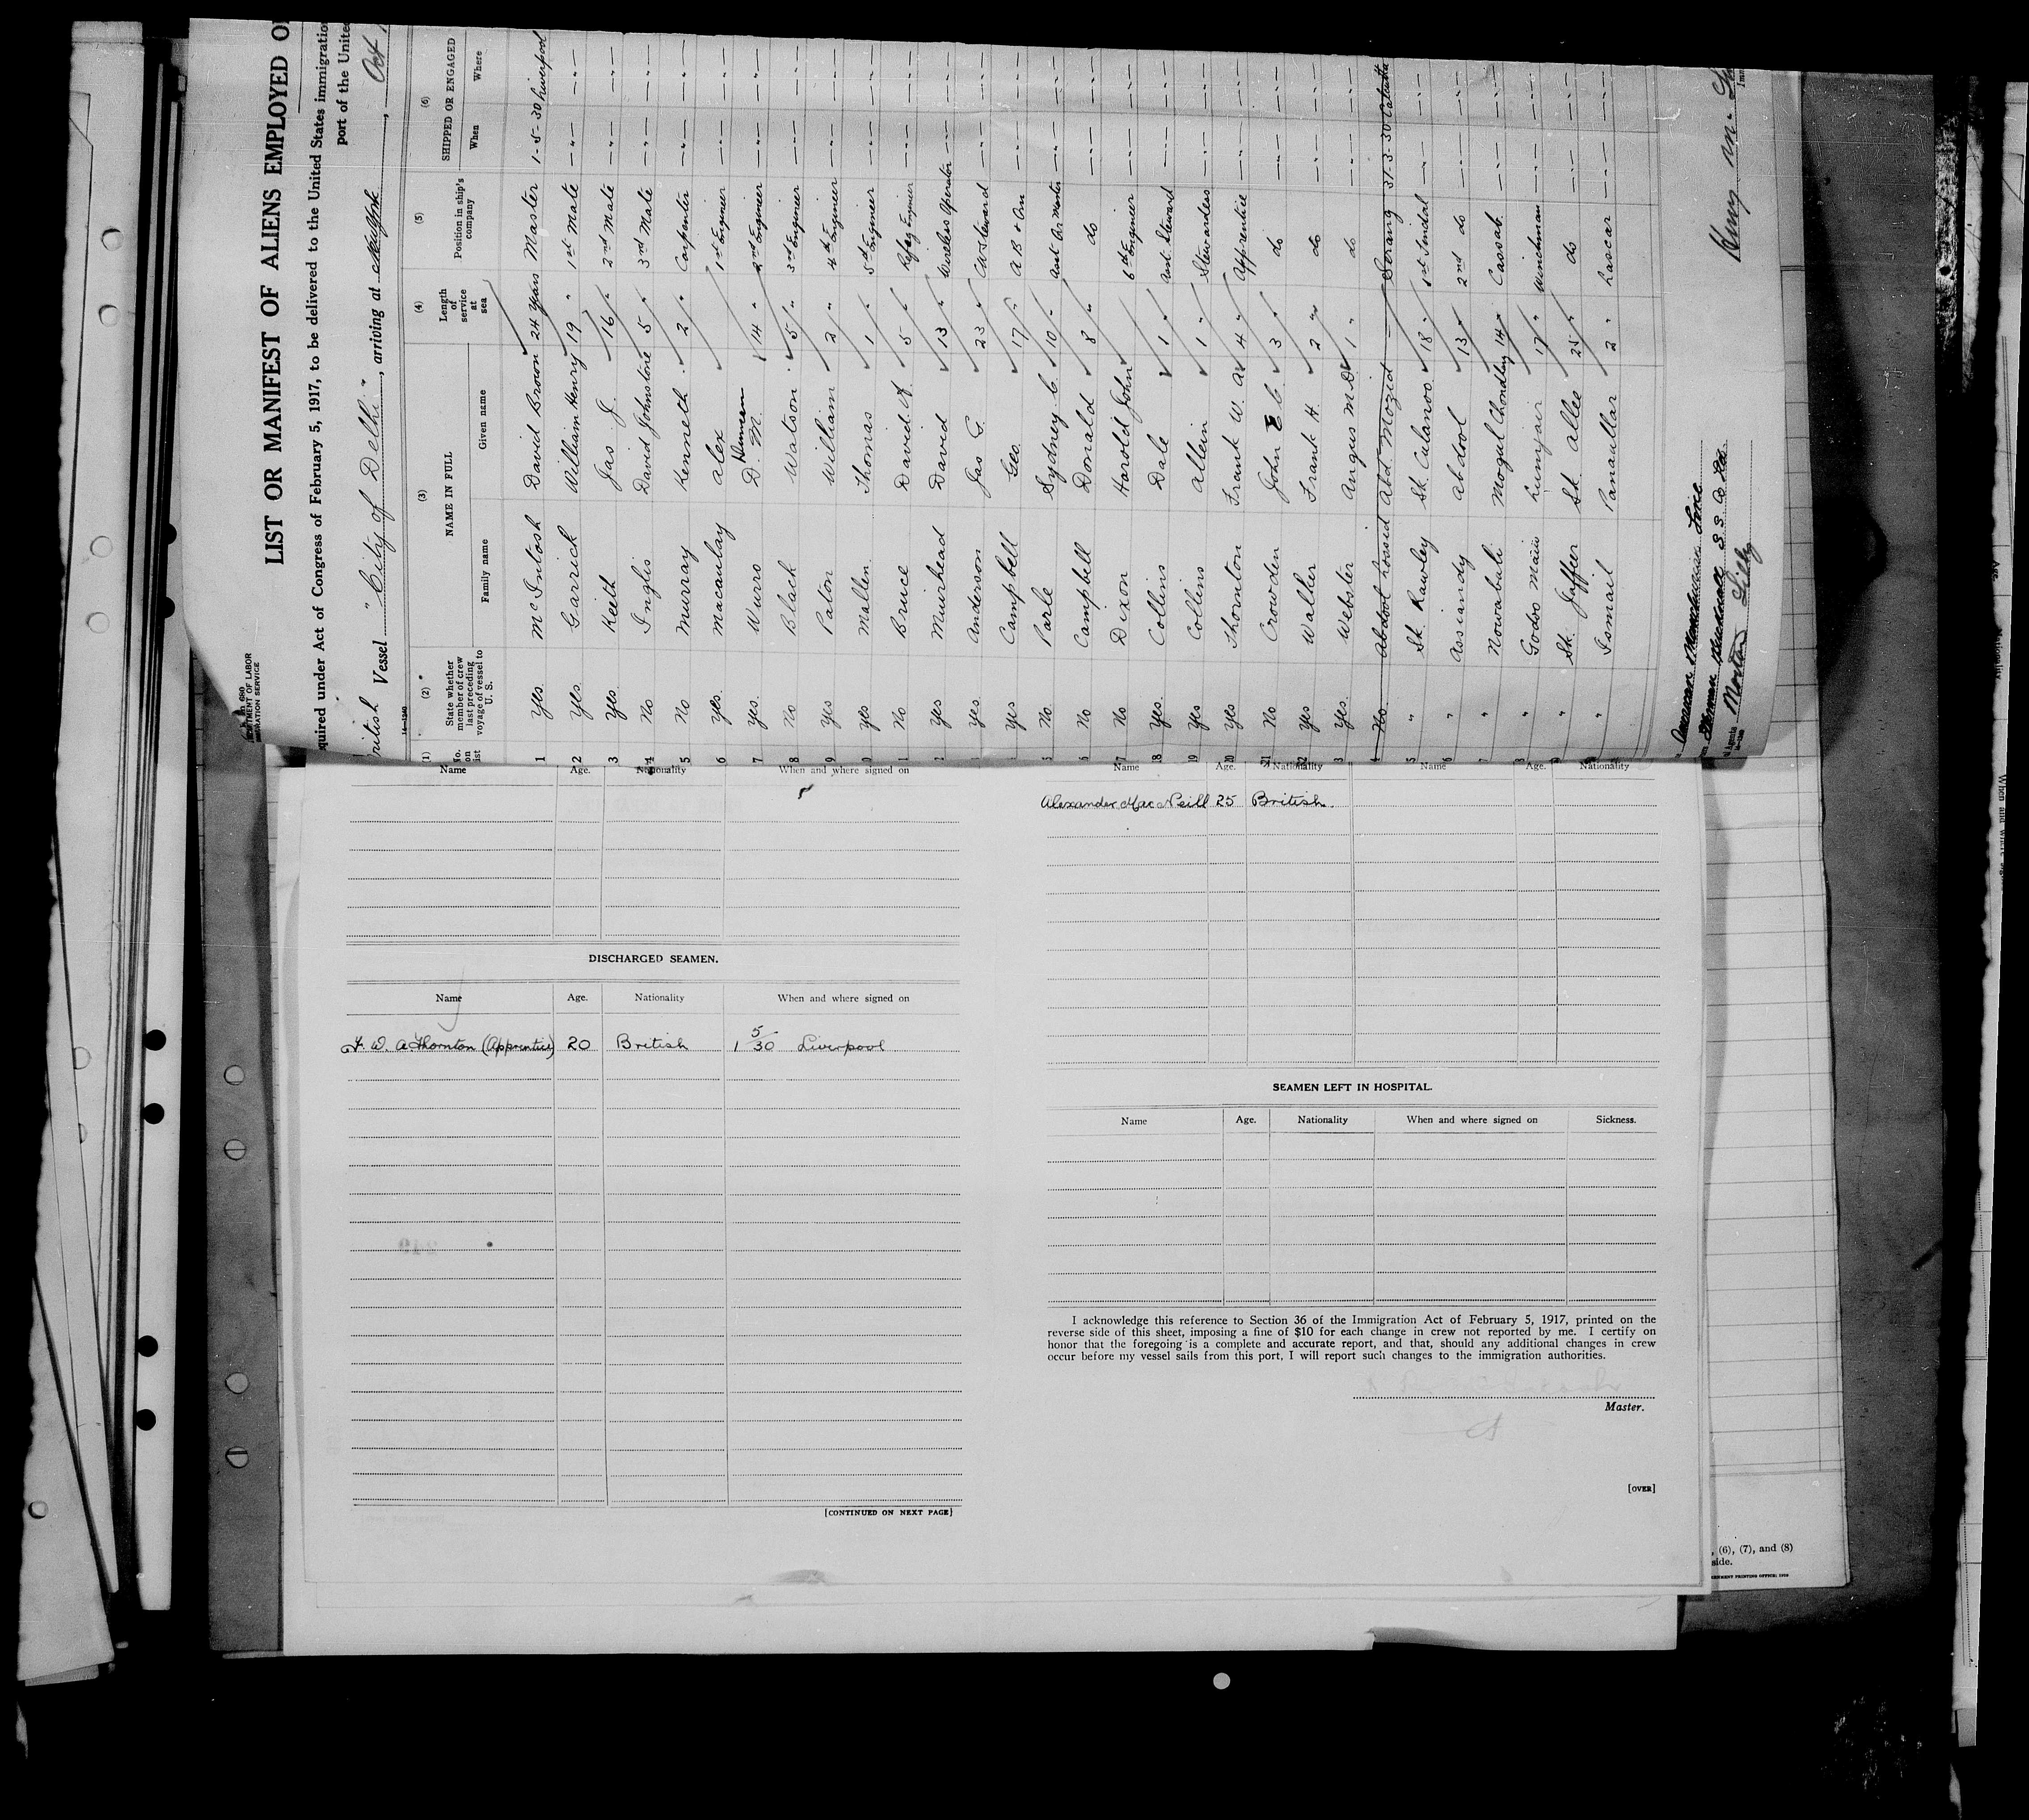 LIST OR MANIFEST OF ALIENS EMPLOYED O
quired under Act of Congress of February 5, 1917, to be delivered to the United States immigratio
port of the Unite
DEPARTMENT OF LABOR
IMMIGRATION SERVICE
ritish Vessel "City of Delhi", arriving at New York, Oct
(1) No. on list (2) State whether member of crew last preceding voyage of vessel to U. S. (3) NAME IN FULL Family name Given name (4) Length of service at sea (5) Position in ship's company (6) SHIPPED OR ENGAGED When Where
1 Yes McIntosh David Brown 24 Years Master 1-5-30 Liverpool
2 Yes Garrick William Henry 19 " 1st Mate -"- -"-
3 Yes Keith Jas J. 16 " 2nd Mate -"- -"-
4 No Inglis David Johnstone 5 " 3rd Mate -"- -"-
5 No Murray Kenneth 2 " Carpenter -"- -"-
6 Yes Macaulay Alex 1st Engineer -"- -"-
7 Yes. D. M. Duncan 14 " 2nd Engineer -"- -"-
8 No Black Watson 5 " 3rd Engineer -"- -"-
9 Yes Paton William 3 " 4th Engineer -"- -"-
0 Yes Mallen Thomas 1 " 5th Engineer -"- -"-
1 No Bruce David A. 5 " Refrg Engineer -"- -"-
2 Yes Muirhead David 13 " Wireless Operator -"- -"-
Yes Anderson Jas G. 23 " Ch Steward -"- -"-
Yes Campbell Geo. 17 " -"- -"-
5 No Parle Sydney C. 10 " -"- -"-
6 No Campbell Donald 8 " do -"- -"-
17 No Dixon Harold John 6th Engineer -"- -"-
18 Yes Collins Dale 1 " Asst. Steward -"- -"-
19 Yes Collins Allein 1 " Stewardess -"- -"-
20 Yes Thornton Frank W. A. 4 " Apprentice -"- -"-
21 No Crowden John E C. 3 " do -"- -"-
22 Yes Walker Frank H. 2 " do -"- -"-
3 Yes. Webster Angus McD 1 " do -"- -"-
4 No. Abdool Abd. Mozid Serang 31-3-30 Calcutta
5 " Sk. Rawley Sk. Culanoo 18 " 1st Tindal -"- -"-
6 " Assiandy Abdool 13 " 2nd do -"- -"-
7 " Nowabali Mogul Chondley 14 " Cassab. -"- -"-
8 " Godo Lunyair 17 " Winchman -"- -"-
9 " Sk. Jaffer Sk. Allee 25 " do -"- -"-
" Ismail Panaullar 2 " Lascar -"- -"-
Line
S. S. Co Ltd.
Norton Lilly
Name Age. Nationality When and where signed on
DISCHARGED SEAMEN.
Name Age. Nationality When and where signed on
F. W. A Thornton (Apprentice) 20 British 1 5/30 Liverpool
[CONTINUED ON NEXT PAGE]
Name Age. Nationality Name Age. Nationality
Alexander MacNeill 25 British.
SEAMEN LEFT IN HOSPITAL.
Name Age. Nationality When and where signed on Sickness.
I acknowledge this reference to Section 36 of the Immigration Act of February 5, 1917, printed on the
reverse side of this sheet, imposing a fine of $10 for each change in crew not reported by me. I certify on
honor that the foregoing is a complete and accurate report, and that, should any additional changes in crew
occur before my vessel sails from this port, I will report such changes to the immigration authorities.
Master.
[OVER]
, (6), (7), and (8)
side.